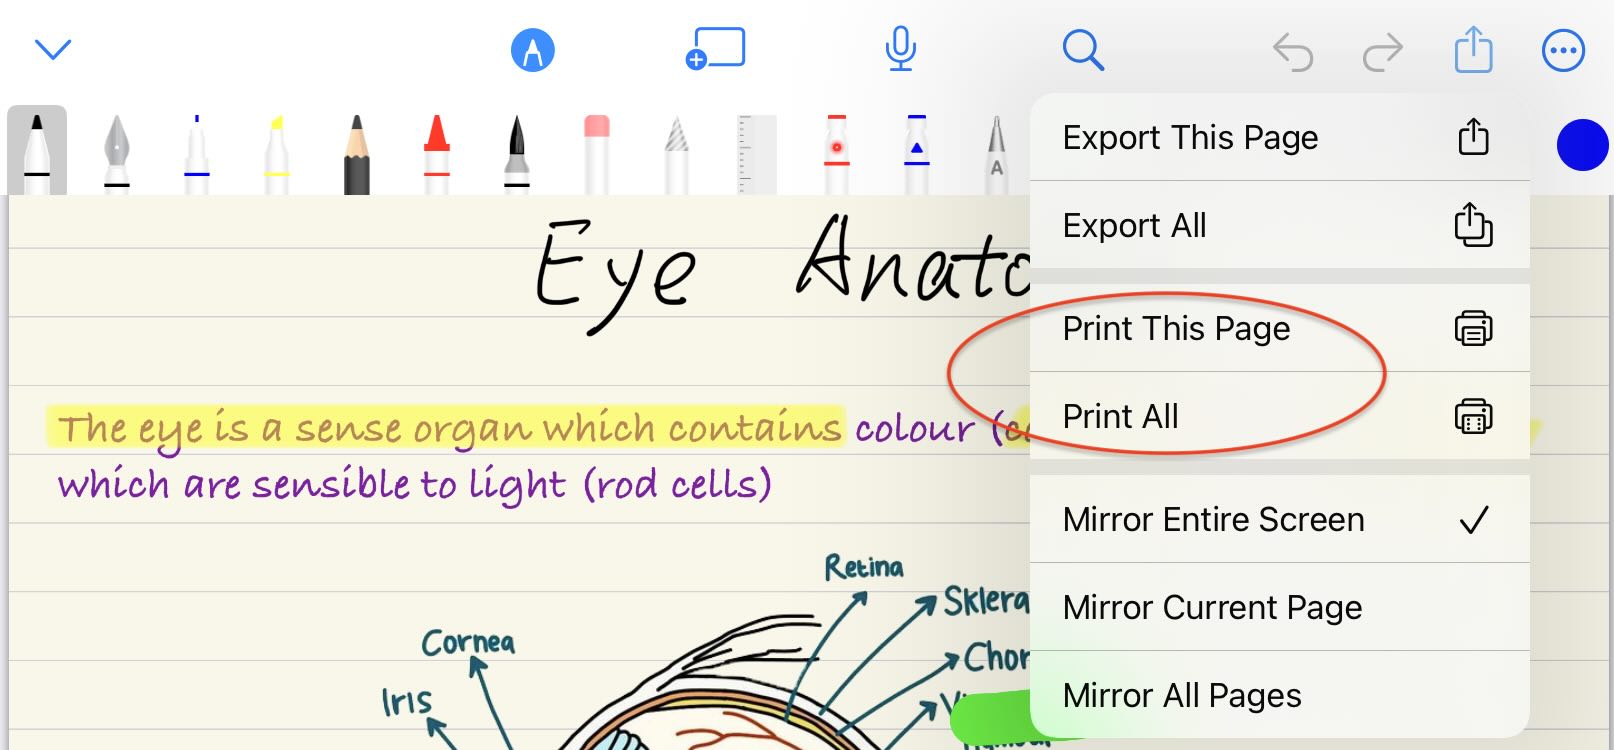 A
Export This Page
Export All
Eye
Print This Page
Print All
The eye is a sense organ which contains colour (
which are sensible to light (rod cells)
Mirror Entire Screen
Mirror Current Page
Mirror All Pages
Retina
Sklera
Cornea
Iris